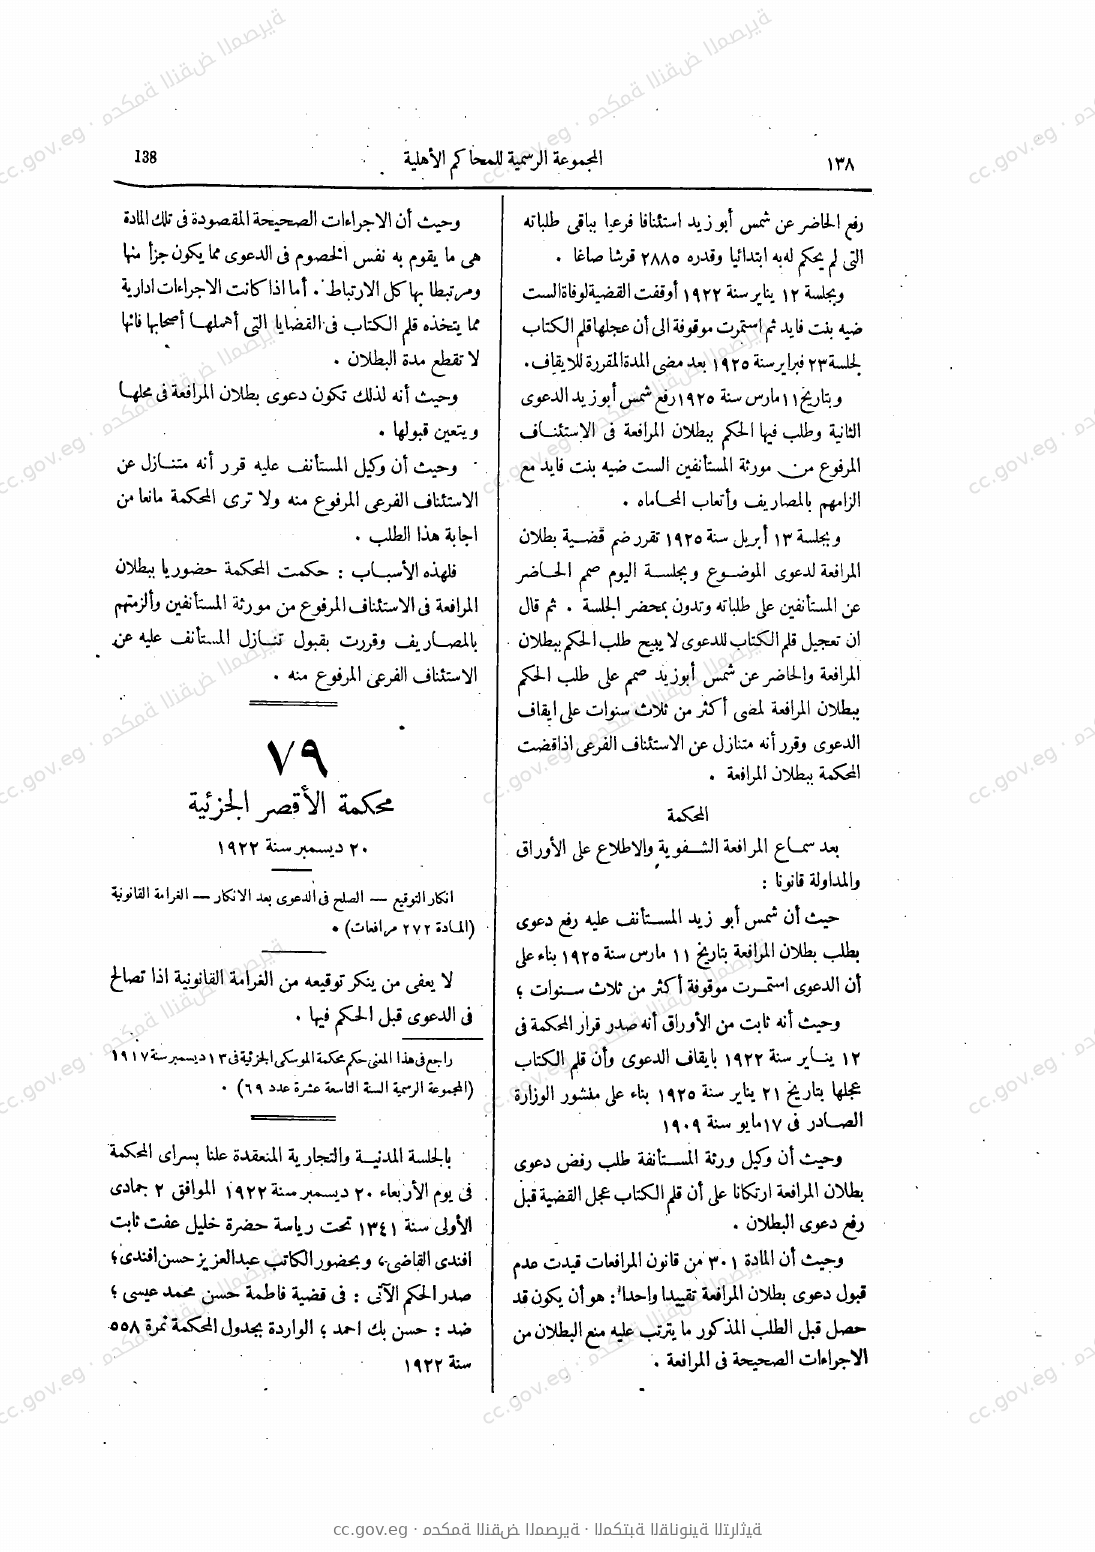 ١٣٨
المجموعة الرسمية للمحاكم الأهلية
138
رفع الحاضر عن شمس أبو زيد استئنافا فرعيا بباقى طلباته
التى لم يحكم له به ابتدائيا وقدره ٢٨٨٥ قرشا صاغا .
وبجلسة ١٢ يناير سنة ١٩٢٢ أوقفت القضية لوفاة الست
ضيه بنت فايد ثم استمرت موقوفة الى أن عجلها قلم الكتاب
لجلسة ٢٣ فبراير سنة ١٩٢٥ بعد مضى المدة المقررة للايقاف.
وبتاريخ ١١ مارس سنة ١٩٢٥ رفع شمس أبو زيد الدعوى
الثانية وطلب فيها الحكم ببطلان المرافعة فى الاستئناف
المرفوع من مورثة المستأنفين الست ضيه بنت فايد مع
الزامهم بالمصاريف وأتعاب المحاماه .
وبجلسة ١٣ أبريل سنة ١٩٢٥ تقرر ضم قضية بطلان
المرافعة لدعوى الموضوع وبجلسة اليوم صمم الحاضر
عن المستأنفين على طلباته وتدون بمحضر الجلسة . ثم قال
ان تعجيل قلم الكتاب للدعوى لا يبيح طلب الحكم ببطلان
المرافعة والحاضر عن شمس أبو زيد صمم على طلب الحكم
ببطلان المرافعة لمضى أكثر من ثلاث سنوات على ايقاف
الدعوى وقرر أنه متنازل عن الاستئناف الفرعى اذا قضت
المحكمة ببطلان المرافعة .
المحكمة
بعد سماع المرافعة الشفوية والاطلاع على الأوراق
والمداولة قانونا :
حيث أن شمس أبو زيد المستأنف عليه رفع دعوى
بطلب بطلان المرافعة بتاريخ ١١ مارس سنة ١٩٢٥ بناء على
أن الدعوى استمرت موقوفة أكثر من ثلاث سنوات ؛
وحيث أنه ثابت من الأوراق أنه صدر قرار المحكمة فى
١٢ يناير سنة ١٩٢٢ بايقاف الدعوى وأن قلم الكتاب
عجلها بتاريخ ٢١ يناير سنة ١٩٢٥ بناء على منشور الوزارة
الصادر فى ١٧ مايو سنة ١٩٠٩
وحيث أن وكيل ورثة المستأنفة طلب رفض دعوى
بطلان المرافعة ارتكانا على أن قلم الكتاب عجل القضية قبل
رفع دعوى البطلان .
وحيث أن المادة ٣٠١ من قانون المرافعات قيدت عدم
قبول دعوى بطلان المرافعة تقييدا واحدا : هو أن يكون قد
حصل قبل الطلب المذكور ما يترتب عليه منع البطلان من
الاجراءات الصحيحة فى المرافعة .
وحيث أن الاجراءات الصحيحة المقصودة فى تلك المادة
هى ما يقوم به نفس الخصوم فى الدعوى مما يكون جزأ منها
ومرتبطا بها كل الارتباط . أما اذا كانت الاجراءات ادارية
مما يتخذه قلم الكتاب فى القضايا التى أهملها أصحابها فانها
لا تقطع مدة البطلان .
وحيث أنه لذلك تكون دعوى بطلان المرافعة فى محلها
ويتعين قبولها .
وحيث أن وكيل المستأنف عليه قرر أنه متنازل عن
الاستئناف الفرعى المرفوع منه ولا ترى المحكمة مانعا من
اجابة هذا الطلب .
فلهذه الأسباب : حكمت المحكمة حضوريا ببطلان
المرافعة فى الاستئناف المرفوع من مورثة المستأنفين وألزمتهم
بالمصاريف وقررت بقبول تنازل المستأنف عليه عن
الاستئناف الفرعى المرفوع منه .
٧٩
محكمة الأقصر الجزئية
٢٠ ديسمبر سنة ١٩٢٢
انكار التوقيع — الصلح فى الدعوى بعد الانكار — الغرامة القانونية
(المادة ٢٧٢ مرافعات) .
لا يعفى من ينكر توقيعه من الغرامة القانونية اذا تصالح
فى الدعوى قبل الحكم فيها .
راجع فى هذا المعنى حكم محكمة الموسكى الجزئية فى ١٣ ديسمبر سنة ١٩١٧
(المجموعة الرسمية السنة التاسعة عشرة عدد ٦٩) .
بالجلسة المدنية والتجارية المنعقدة علنا بسراى المحكمة
فى يوم الأربعاء ٢٠ ديسمبر سنة ١٩٢٢ الموافق ٢ جمادى
الأولى سنة ١٣٤١ تحت رياسة حضرة خليل عفت ثابت
افندى القاضى، وبحضور الكاتب عبد العزيز حسن افندى؛
صدر الحكم الآتى : فى قضية فاطمة حسن محمد عيسى ؛
ضد : حسن بك احمد ؛ الواردة بجدول المحكمة نمرة ٥٥٨
سنة ١٩٢٢
cc.gov.eg · محكمة النقض المصرية · المكتبة القانونية التراثية